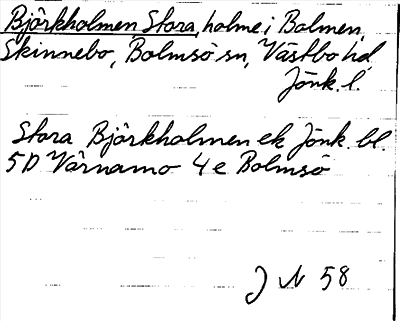 Björkholmen, Stora, holme i Bolmen,
Skinnebo, Bolmsö sn, Västbo hd,
Jönk. l.
Stora Björkholmen ek Jönk. bl.
5D Värnamo 4e Bolmsö
J N 58